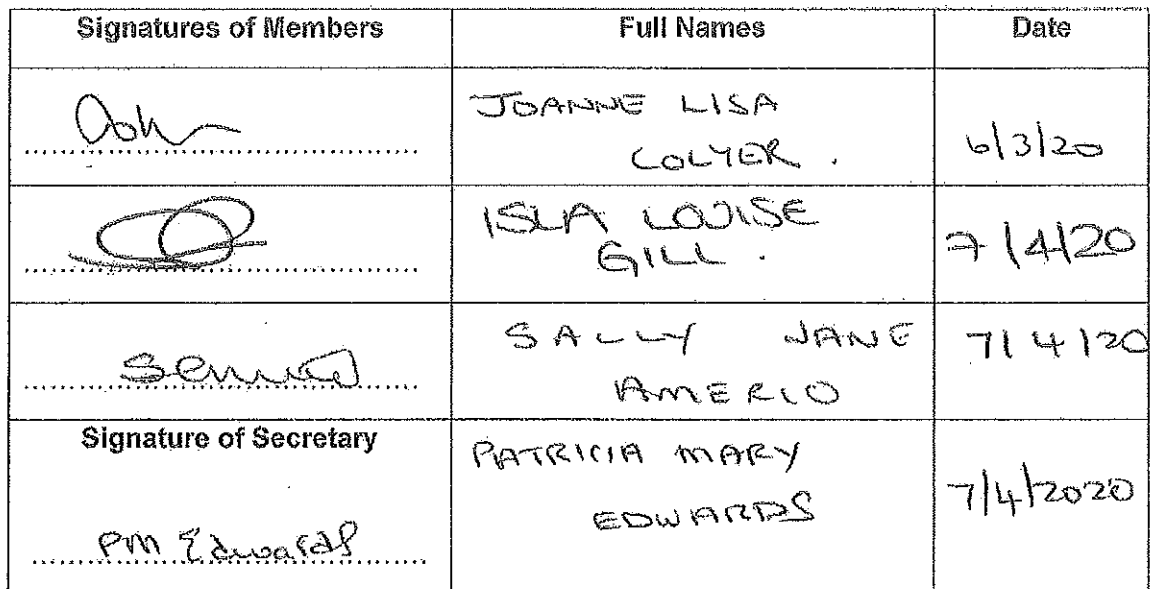 Signatures of Members Full Names Date
JOANNE LISA
COLYER . 6/3/20
ISLA LOUISE
GILL . 7/4/20
SALLY JANE 7/4/20
AMERIO
Signature of Secretary PATRICIA MARY
EDWARDS 7/4/2020
PM Edwards